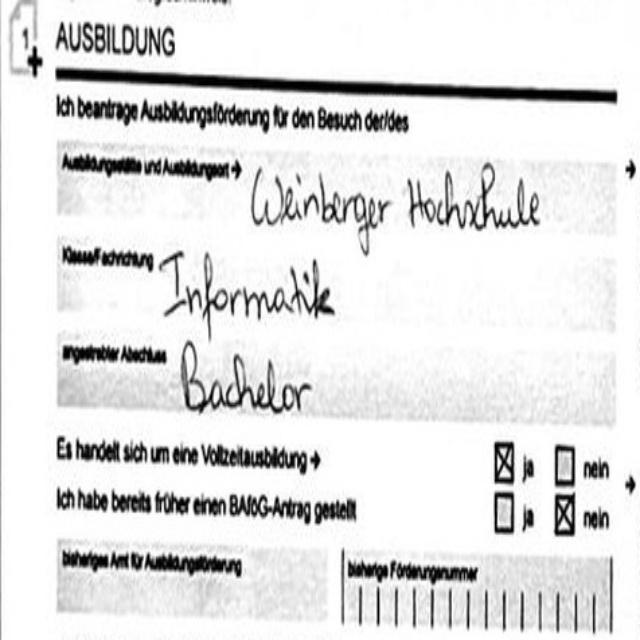 1
AUSBILDUNG
Ich beantrage Ausbildungsförderung für den Besuch der/des
Ausbildungsstätte und Ausbildungsort → Weinberger Hochschule
Klasse/Fachrichtung Informatik
angestrebter Abschluss Bachelor
Es handelt sich um eine Vollzeitausbildung → ☒ ja ☐ nein
Ich habe bereits früher einen BAföG-Antrag gestellt ☐ ja ☒ nein
bisheriges Amt für Ausbildungsförderung bisherige Förderungsnummer